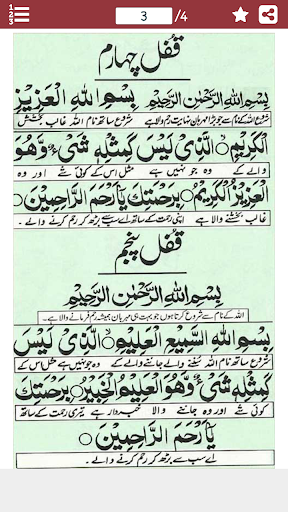 3 /4
قفل چہارم
بِسْمِ اللهِ الرَّحْمٰنِ الرَّحِيْمِ بِسْمِ اللهِ الْعَزِيْزِ
شروع اللہ کے نام سے جو بڑا مہربان نہایت رحم والا ہے شروع ساتھ نام اللہ غالب بخشش
الْكَرِيْمِ الَّذِيْ لَيْسَ كَمِثْلِهٖ شَيْءٌ وَّهُوَ
والے کے وہ جو نہیں ہے مثل اس کے کوئی شے اور وہ
الْعَزِيْزُ الْكَرِيْمُ بِرَحْمَتِكَ يَا اَرْحَمَ الرَّاحِمِيْنَ
غالب بخشنے والا ہے اپنی رحمت کے ساتھ اے سب سے بڑھ کر رحم کرنے والے۔
قفل پنجم
بِسْمِ اللهِ الرَّحْمٰنِ الرَّحِيْمِ
اللہ کے نام سے شروع کرتا ہوں جو بہت ہی مہربان ہمیشہ رحم فرمانے والا ہے۔
بِسْمِ اللهِ السَّمِيْعِ الْعَلِيْمِ الَّذِيْ لَيْسَ
شروع ساتھ نام اللہ سننے والے جاننے والے کے وہ جو نہیں ہے مثل اس کے
كَمِثْلِهٖ شَيْءٌ وَّهُوَ الْعَلِيْمُ الْخَبِيْرُ بِرَحْمَتِكَ
کوئی شے اور وہ جاننے والا خبردار ہے تیری رحمت کے ساتھ
يَا اَرْحَمَ الرَّاحِمِيْنَ
اے سب سے بڑھ کر رحم کرنے والے۔